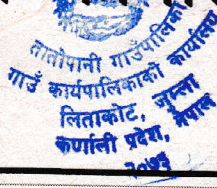 तातोपानी गाउँपालिका
गाउँ कार्यपालिकाको कार्यालय
लिताकोट, जुम्ला
कर्णाली प्रदेश, नेपाल
२०७३